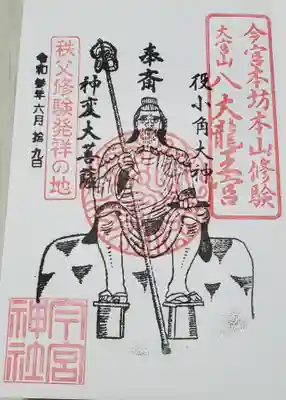 今宮本坊本山修験
大宮山 八大龍王宮
役小角大神
奉斎
神変大菩薩
秩父修験発祥の地
令和参年六月拾九日
今宮神社